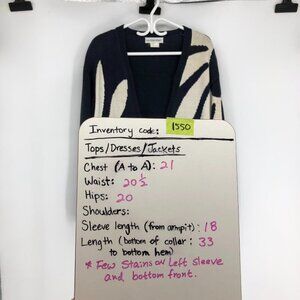 Inventory code: 1550
Tops/Dresses/Jackets
Chest (A to A): 21
Waist: 20 1/2
Hips: 20
Shoulders:
Sleeve length (from armpit): 18
Length (bottom of collar: 33
to bottom hem)
* Few Stains on Left sleeve
and bottom front.